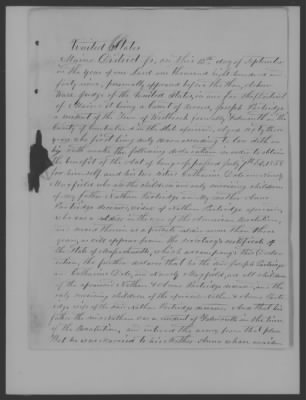 United States
Maine District ss, on this 12th day of September
in the year of our Lord one thousand eight hundred and
forty nine, personally appeared before the Hon. Ashur
Ware Judge of the United States, in and for the District
of Maine it being a Court of record, Joseph Partridge
a resident of the Town of Westbrook formerly Falmouth in the
County of Cumberland in the State aforesaid, Aged sixty three
years who first being duly sworn according to law doth on
his Oath make the following declaration in order to obtain
the benefit of the Act of Congress passed July 7th 1838
for himself and his two sisters Catharine Dale and Nancy
Mayfield who are the children and only surviving children
of my father Nathan Partridge and my mother Anna
Partridge deceased, widow of Nathan Partridge aforesaid,
who was a soldier in the war of the American Revolution,
and served therein as a private
years, as will appear from the Secretary's certificate of
the State of Massachusetts, which accompanys this Decla-
ration, He further declares that he the said Joseph Partridge
and Catharine Dale, and Nancy Mayfield, are all children
of the aforesaid Nathan & Anna Partridge deceased, and the
only surviving children of the aforesaid Nathan & Anna Part-
ridge wife of the said Nathan Partridge deceased. And that his
father the said Nathan was a resident of Falmouth in the time
of the Revolution, and entered the army from that place
That he was Married to his Mother Anna whose maiden